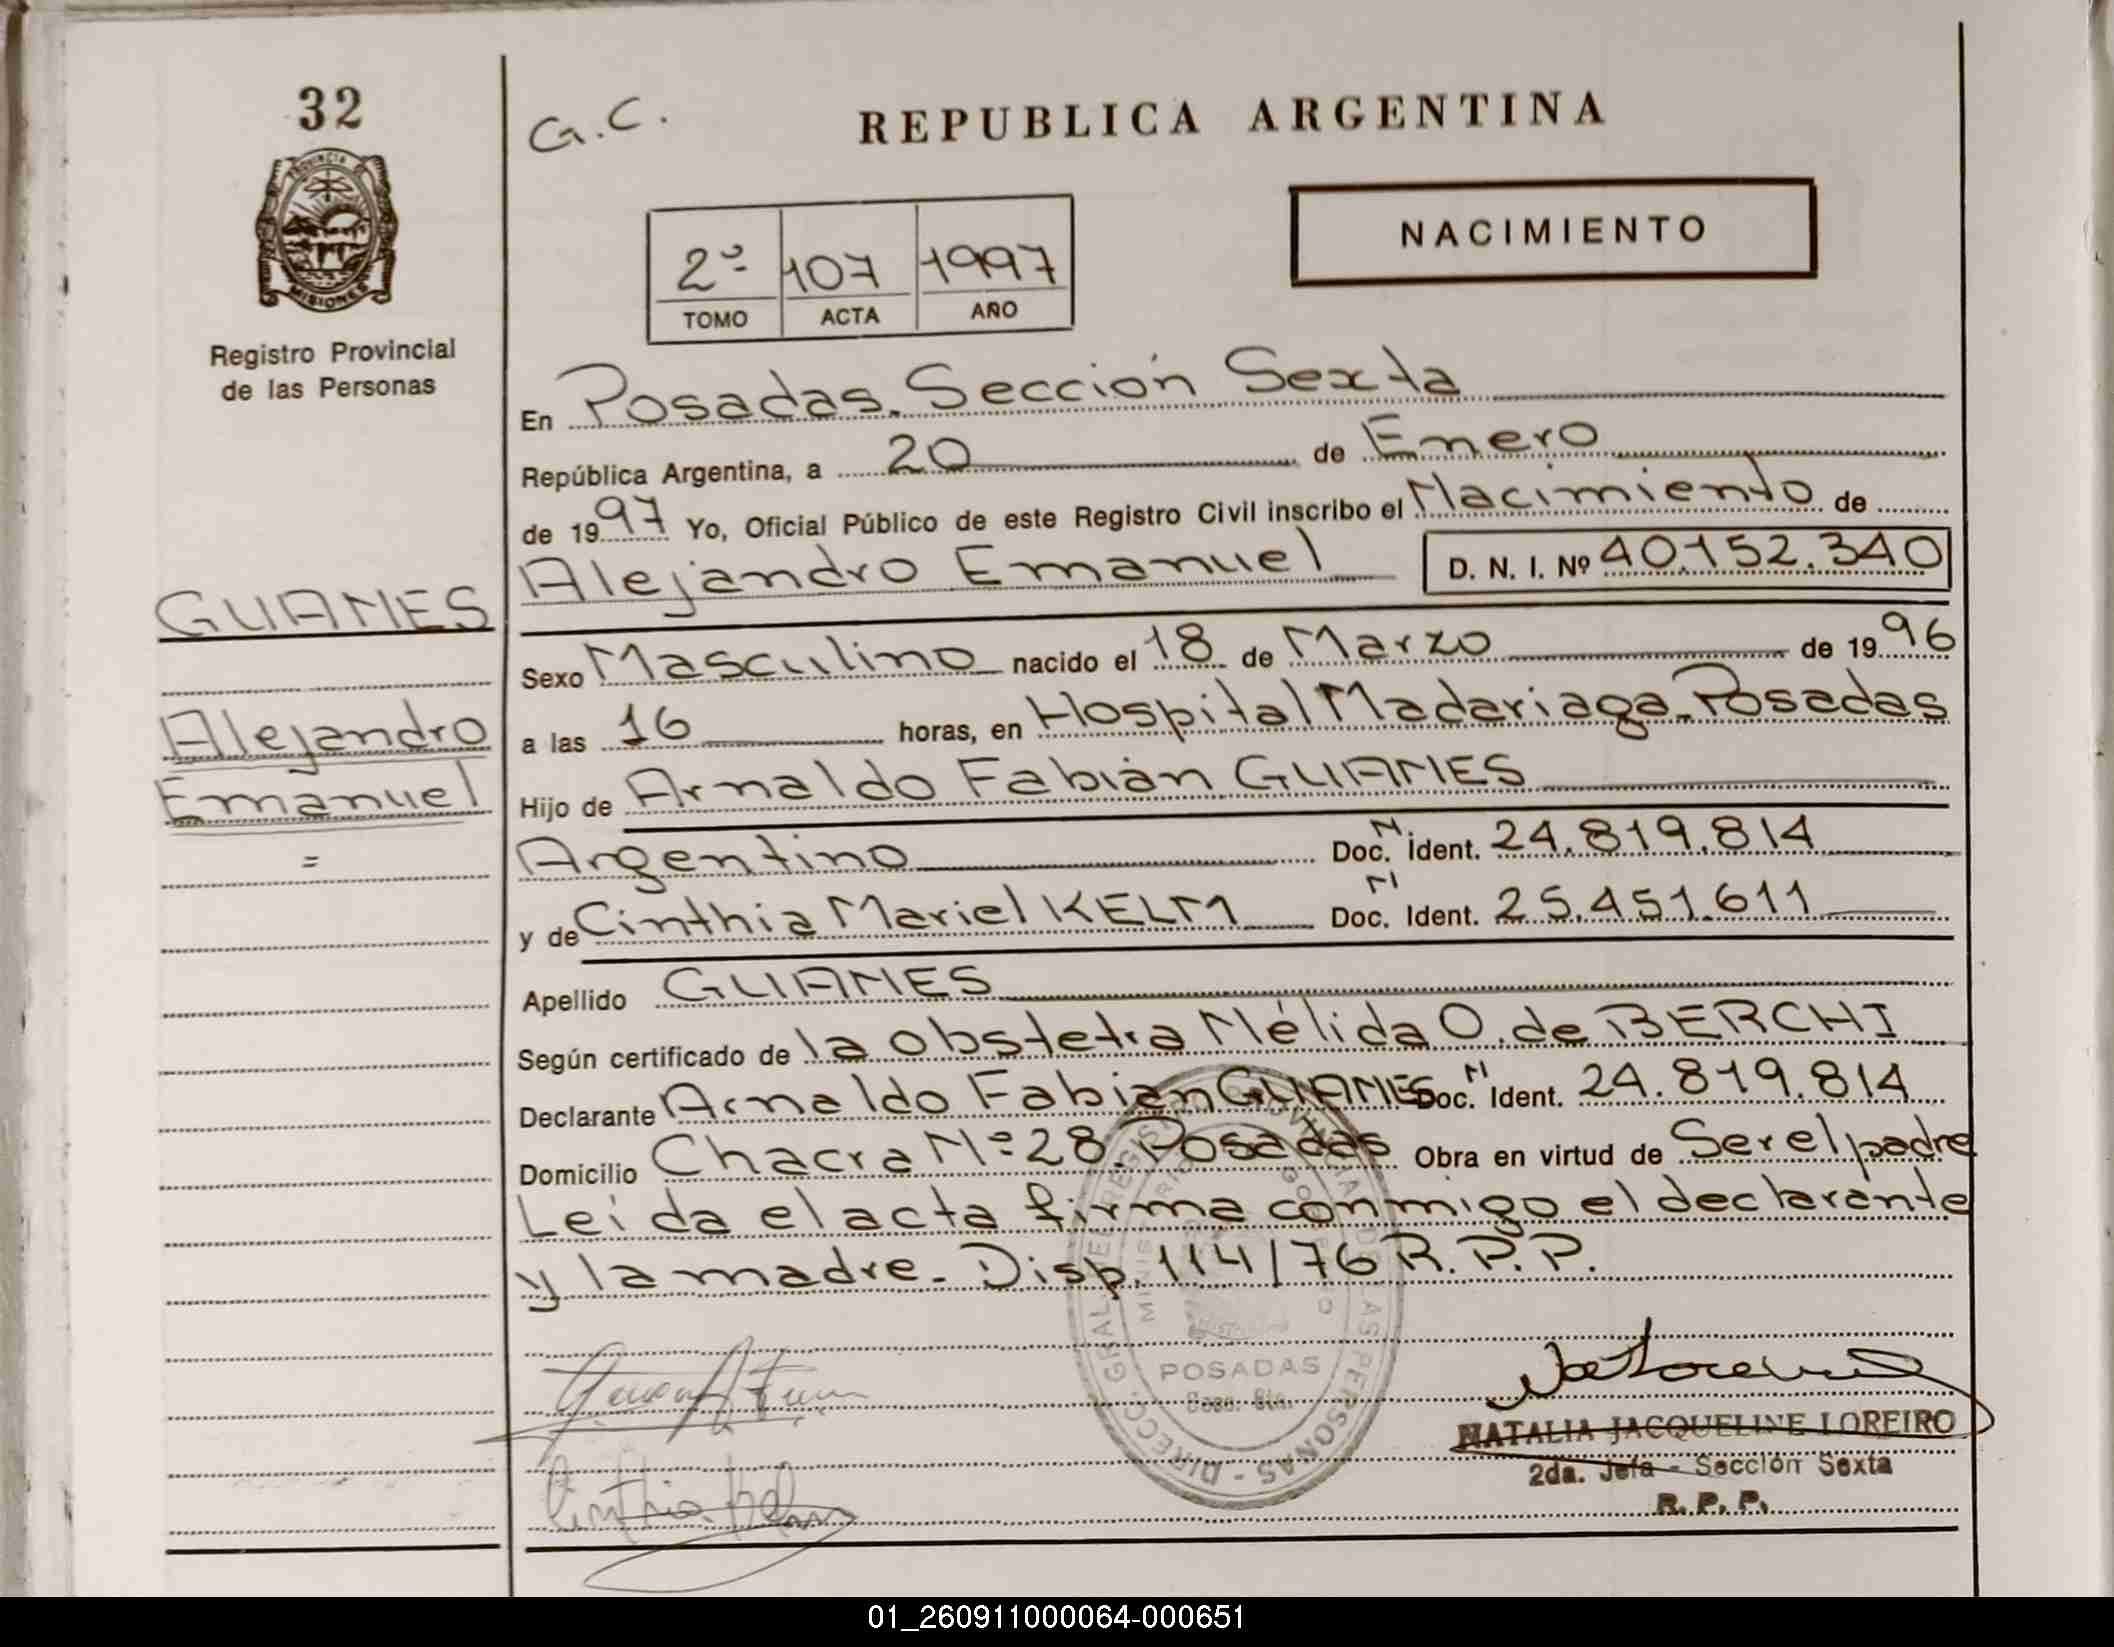 32
PROVINCIA
MISIONES
Registro Provincial
de las Personas
GUANES
Alejandro
Emanuel
=
G.C.
REPUBLICA ARGENTINA
NACIMIENTO
2º 107 1997
TOMO ACTA AÑO
En Posadas. Sección Sexta
República Argentina, a 20 de Enero
de 1997 Yo, Oficial Público de este Registro Civil inscribo el Nacimiento de
Alejandro Emanuel D. N. I. Nº 40.152.340
Sexo Masculino nacido el 18 de Marzo de 1996
a las 16 horas, en Hospital Madariaga-Posadas
Hijo de Arnaldo Fabián GUANES
Argentino Doc. N Ident. 24.819.814
y de Cinthia Mariel KELM Doc. N Ident. 25.451.611
Apellido GUANES
Según certificado de la obstetra Nélida O. de BERCHI
Declarante Arnaldo Fabián GUANES Doc. N Ident. 24.819.814
Domicilio Chacra Nº 28. Posadas Obra en virtud de Ser el padre
Leída el acta firma conmigo el declarante
y la madre. Disp. 114/76 R.P.P.
DIRECC. GRAL. DE REGISTRO PROVINCIAL DE LAS PERSONAS
POSADAS
NATALIA JACQUELINE LOREIRO
2da. Jefa - Sección Sexta
R. P. P.
01_260911000064-000651